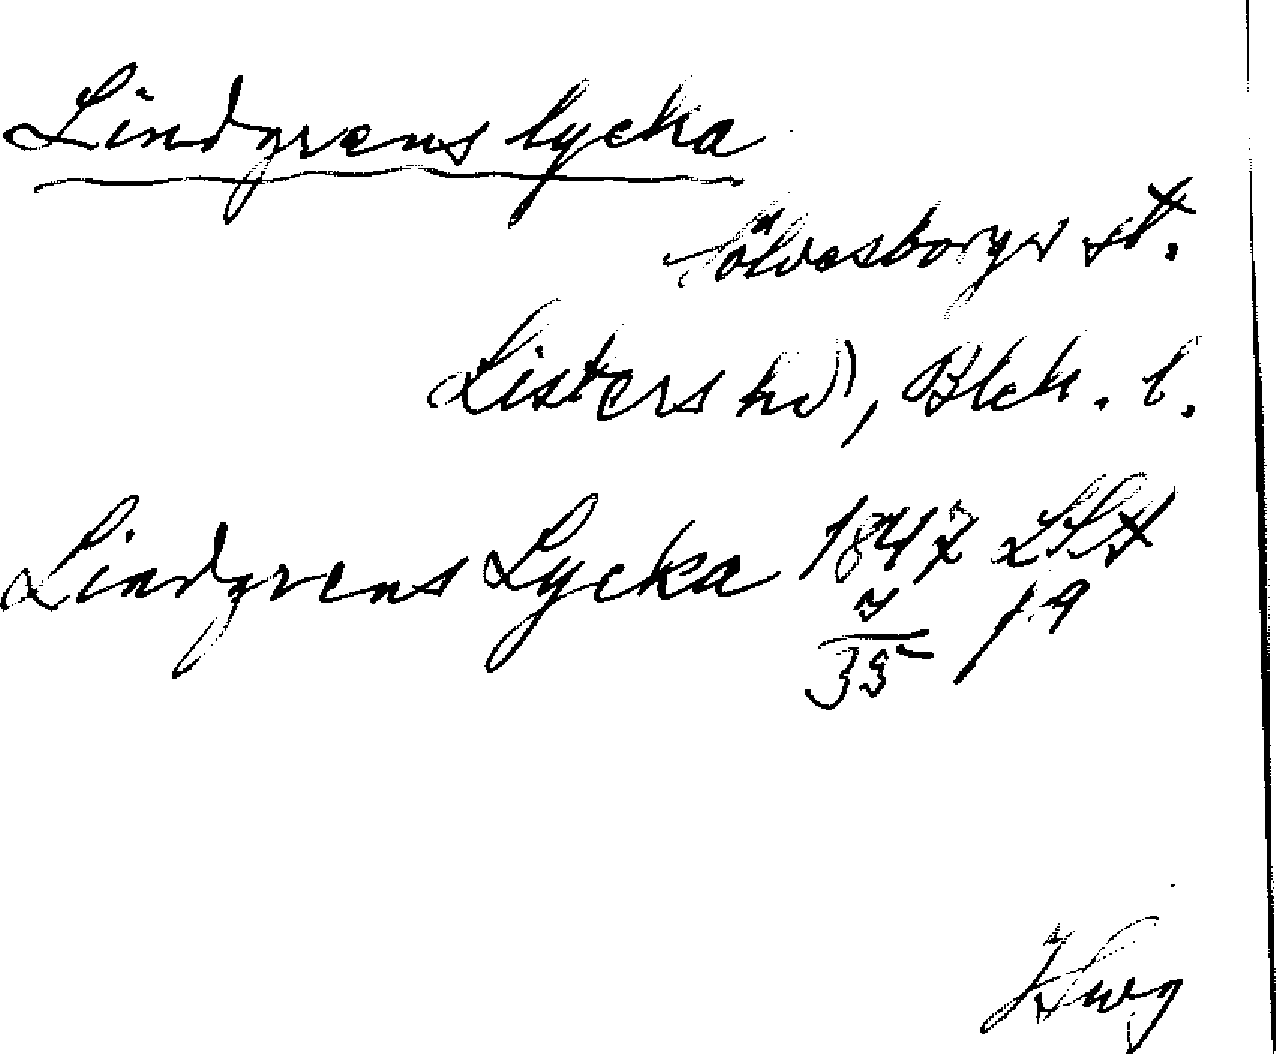 Lindgrens lycka
Sölvesborgs st.
Listers hd, Blek. l.
Lindgrens Lycka 1847 LSA
7/35 19